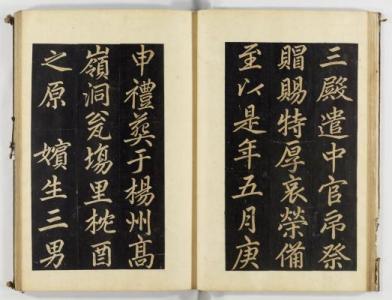 三殿遣中官弔祭
賵賜特厚哀榮備
至以是年五月庚
申禮葬于楊州高
嶺洞瓮場里枕酉
之原 嬪生三男